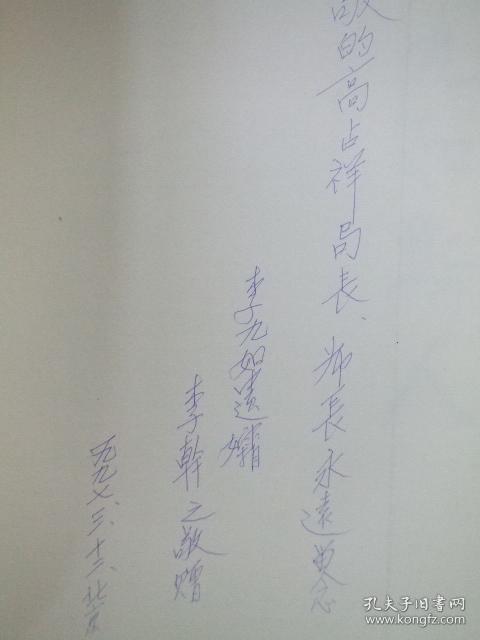 敬的高占祥局長、部長永遠留念
李九如遺孀
李幹之敬贈
一九九七、三、十二、北京
孔夫子旧书网
www.kongfz.com